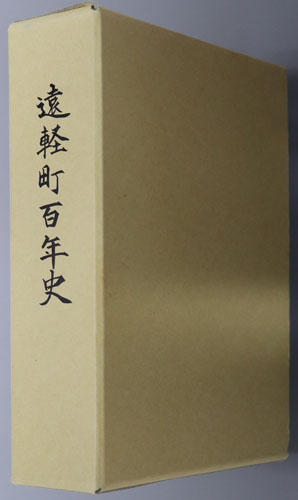 遠軽町百年史